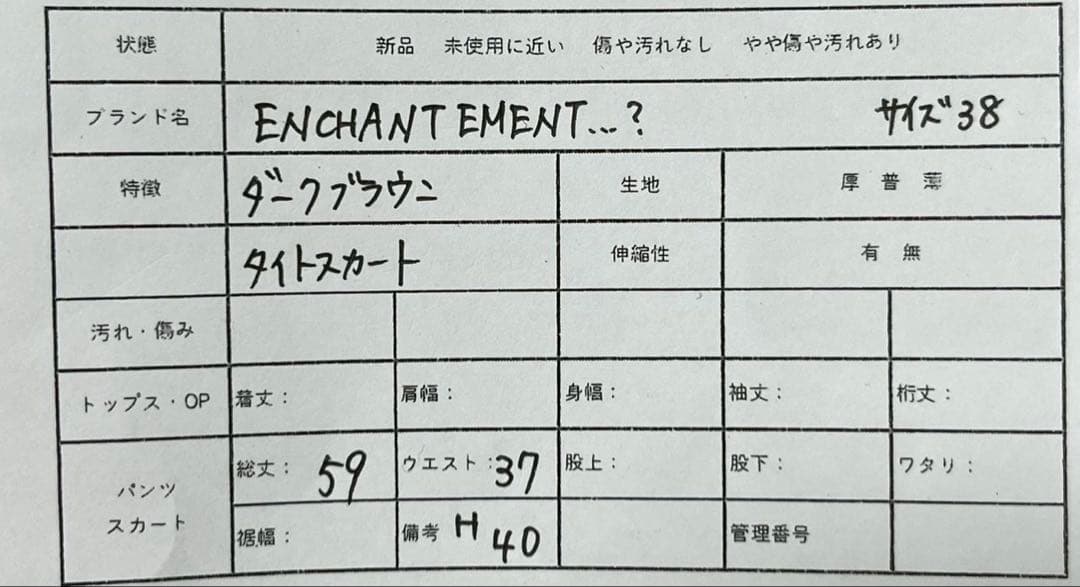 状態 新品 未使用に近い 傷や汚れなし やや傷や汚れあり
ブランド名 ENCHANTEMENT...? サイズ38
特徴 ダークブラウン 生地 厚 普 薄
タイトスカート 伸縮性 有 無
汚れ・傷み
トップス・OP 着丈： 肩幅： 身幅： 袖丈： 裄丈：
パンツ スカート 総丈： 59 ウエスト： 37 股上： 股下： ワタリ：
裾幅： 備考 H 40 管理番号